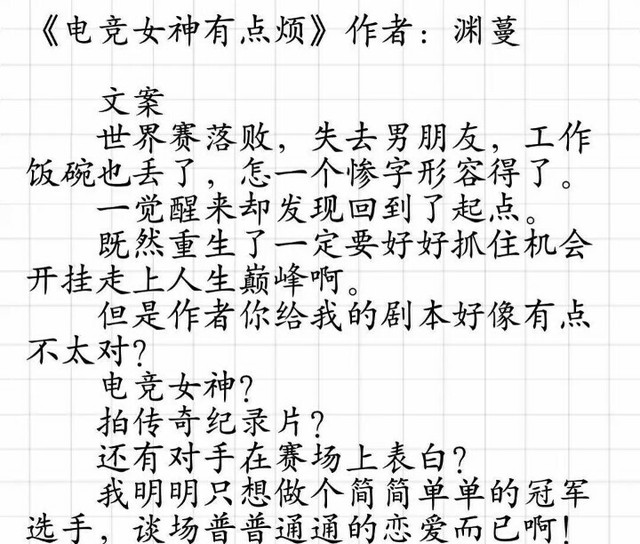 《电竞女神有点烦》作者：渊蔓
文案
世界赛落败，失去男朋友，工作
饭碗也丢了，怎一个惨字形容得了。
一觉醒来却发现回到了起点。
既然重生了一定要好好抓住机会
开挂走上人生巅峰啊。
但是作者你给我的剧本好像有点
不太对?
电竞女神?
拍传奇纪录片?
还有对手在赛场上表白?
我明明只想做个简简单单的冠军
选手，谈场普普通通的恋爱而已啊!